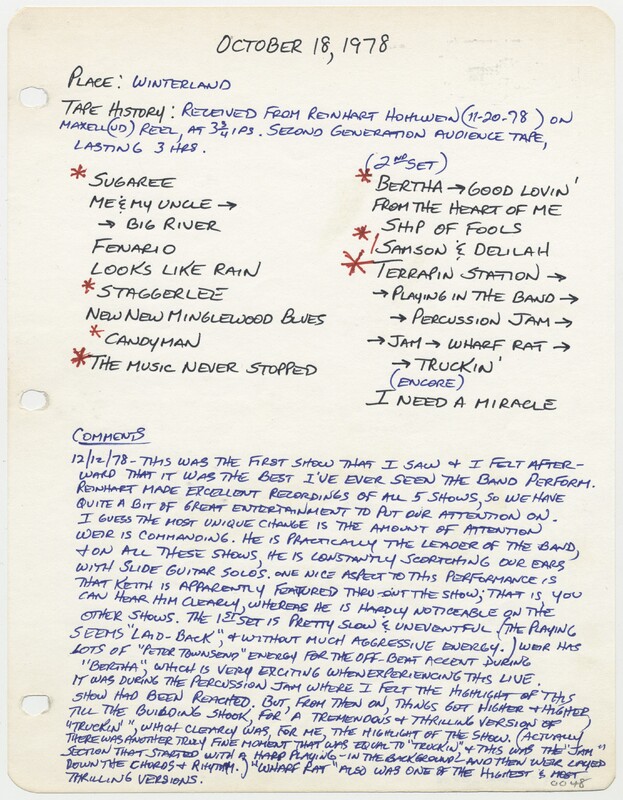 OCTOBER 18, 1978
PLACE: WINTERLAND
TAPE HISTORY: RECEIVED FROM REINHART HOHLWEIN (11-20-78) ON
MAXELL (UD) REEL, AT 3 3/4 IPS. SECOND GENERATION AUDIENCE TAPE,
LASTING 3 HRS.
* SUGAREE
ME & MY UNCLE →
→ BIG RIVER
FENARIO
LOOKS LIKE RAIN
* STAGGERLEE
NEW NEW MINGLEWOOD BLUES
* CANDYMAN
* THE MUSIC NEVER STOPPED
(2ND SET)
* BERTHA → GOOD LOVIN'
FROM THE HEART OF ME
* SHIP OF FOOLS
SAMSON & DELILAH
* TERRAPIN STATION →
→ PLAYING IN THE BAND →
→ PERCUSSION JAM →
→ JAM → WHARF RAT →
→ TRUCKIN'
(ENCORE)
I NEED A MIRACLE
COMMENTS
12/12/78 - THIS WAS THE FIRST SHOW THAT I SAW & I FELT AFTER-
WARD THAT IT WAS THE BEST I'VE EVER SEEN THE BAND PERFORM.
REINHART MADE EXCELLENT RECORDINGS OF ALL 5 SHOWS, SO WE HAVE
QUITE A BIT OF GREAT ENTERTAINMENT TO PUT OUR ATTENTION ON.
I GUESS THE MOST UNIQUE CHANGE IS THE AMOUNT OF ATTENTION
WEIR IS COMMANDING. HE IS PRACTICALLY THE LEADER OF THE BAND,
& ON ALL THESE SHOWS, HE IS CONSTANTLY SCORTCHING OUR EARS
WITH SLIDE GUITAR SOLOS. ONE NICE ASPECT TO THIS PERFORMANCE IS
THAT KEITH IS APPARENTLY FEATURED THRU-OUT THE SHOW; THAT IS, YOU
CAN HEAR HIM CLEARLY, WHEREAS HE IS HARDLY NOTICEABLE ON THE
OTHER SHOWS. THE 1ST SET IS PRETTY SLOW & UNEVENTFUL (THE PLAYING
SEEMS "LAID-BACK", & WITHOUT MUCH AGGRESSIVE ENERGY.) WEIR HAS
LOTS OF "PETER TOWNSEND" ENERGY FOR THE OFF-BEAT ACCENT DURING
"BERTHA", WHICH IS VERY EXCITING WHEN EXPERIENCING THIS LIVE.
IT WAS DURING THE PERCUSSION JAM WHERE I FELT THE HIGHLIGHT OF THIS
SHOW HAD BEEN REACHED. BUT, FROM THEN ON, THINGS GOT HIGHER & HIGHER
TILL THE BUILDING SHOOK, FOR A TREMENDOUS & THRILLING VERSION OF
"TRUCKIN'", WHICH CLEARLY WAS, FOR ME, THE HIGHLIGHT OF THE SHOW. (ACTUALLY
THERE WAS ANOTHER TRULY FINE MOMENT THAT WAS EQUAL TO "TRUCKIN'" & THIS WAS THE "JAM"
SECTION THAT STARTED WITH A HARD PLAYING - IN THE BACKGROUND AND THEN WEIR LAYED
DOWN THE CHORDS & RHYTHM.) "WHARF RAT" ALSO WAS ONE OF THE HIGHEST & MOST
THRILLING VERSIONS.
0048